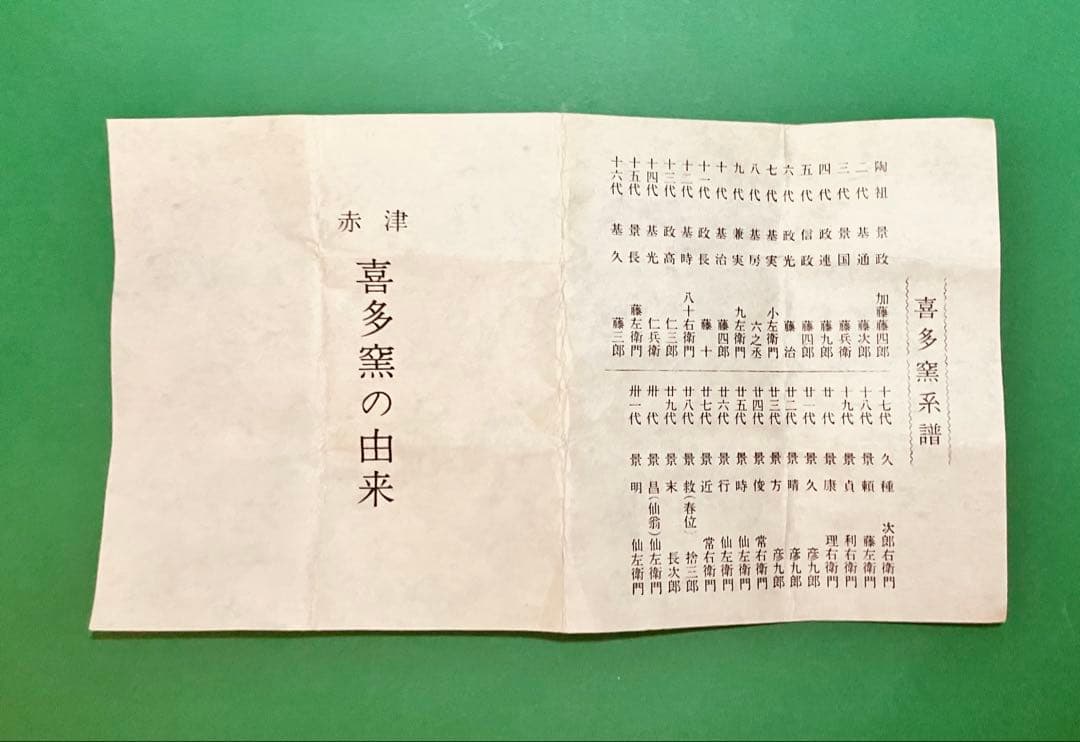 喜多窯系譜
陶祖 景政 加藤藤四郎
二代 基通 藤次郎
三代 景国 藤兵衛
四代 政連 藤九郎
五代 信政 藤四郎
六代 政光 藤治
七代 基実 小左衛門
八代 基房 六之丞
九代 兼実 九左衛門
十代 基治 藤四郎
十一代 政長 藤十
十二代 基時 八十右衛門
十三代 政高 仁三郎
十四代 基光 仁兵衛
十五代 景長 藤左衛門
十六代 基久 藤三郎
十七代 久種 次郎右衛門
十八代 景頼 藤左衛門
十九代 景貞 利右衛門
廿代 景康 理右衛門
廿一代 景久 彦九郎
廿二代 景晴 彦九郎
廿三代 景方 彦九郎
廿四代 景俊 常右衛門
廿五代 景時 仙左衛門
廿六代 景行 仙左衛門
廿七代 景近 常右衛門
廿八代 景救(春位) 拾三郎
廿九代 景末 長次郎
卅代 景昌(仙翁) 仙左衛門
卅一代 景明 仙左衛門
赤津
喜多窯の由来